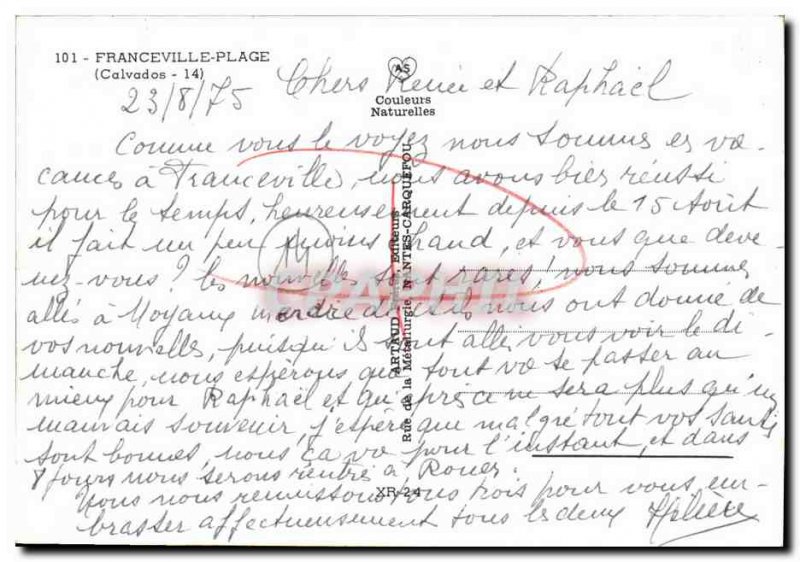 101 - FRANCEVILLE-PLAGE
(Calvados - 14)
23/8/75
Chers Renée et Raphaël
AS
Couleurs
Naturelles
Comme vous le voyez nous sommes en va-
cances à Franceville, nous avons bien réussi
pour le temps, heureusement depuis le 15 Août
il fait un peu moins chaud, et vous que deve-
nez-vous? les nouvelles sont rares! nous sommes
allés à Moyaux ils nous ont donné de
vos nouvelles, puisqu'ils sont allés vous voir le di-
manche, nous espérons que tout va se passer au
mieux pour Raphaël et qu'après ce ne sera plus qu'un
mauvais souvenir, j'espère que malgré tout vos santés
sont bonnes, nous ça va pour l'instant, et dans
8 jours nous serons rentrés à Rouen.
Nous nous réunissons tous trois pour vous em-
brasser affectueusement tous les deux
ARTAUD Éditeurs
Rue de la Métallurgie, NANTES-CARQUEFOU
XR-24